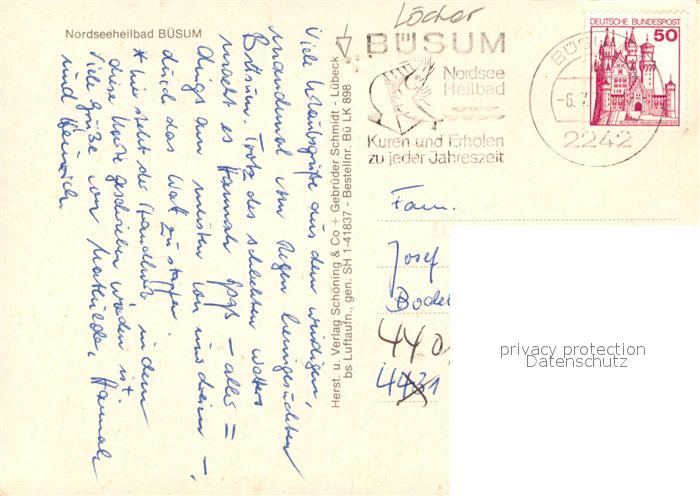 Nordseeheilbad BÜSUM
Viele Urlaubsgrüße aus dem windigen,
manchmal vom Regen heimgesuchten
Büsum. Trotz des schlechten Wetters
macht es Hannah Spaß – aller=
dings am meisten von uns dreien –,
durch das Watt zu stapfen.
* hier steht der Strandkorb in dem
diese Karte geschrieben worden ist.
Viele Grüße von Mathilde, Hannah
und Heinrich.
Herst. u. Verlag Schöning & Co + Gebrüder Schmidt - Lübeck
bs Luftaufn., gen. SH 1-41837 - Bestellnr. Bü LK 898
Löcher
BÜSUM
Nordsee
Heilbad
Kuren und Erholen
zu jeder Jahreszeit
DEUTSCHE BUNDESPOST
50
BÜS
-6.
2242
Fam.
Josef
Bodel
440
4431
privacy protection
Datenschutz